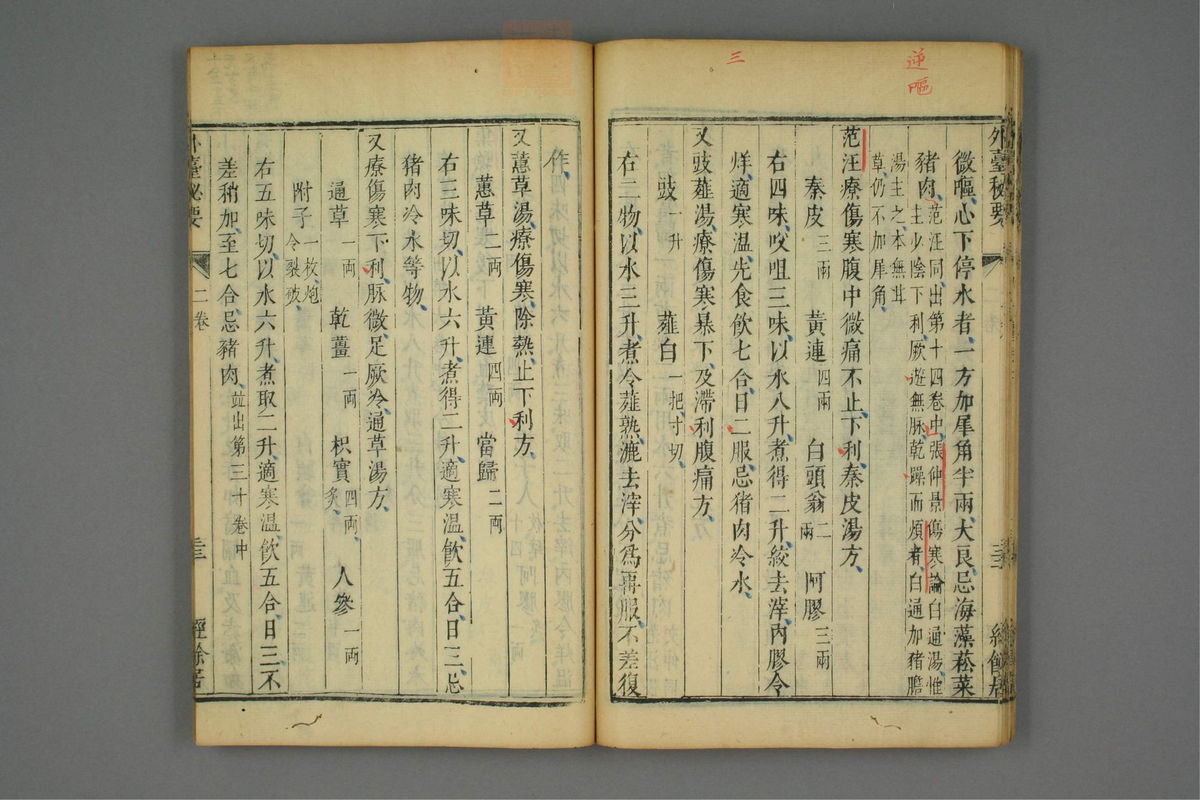 逆嘔
三
外臺秘要
微嘔心下停水者一方加犀角半兩大良忌海藻菘菜
豬肉范汪同出第十四卷中張仲景傷寒論白通湯惟
主少陰下利厥逆無脉乾躁而煩者白通加豬膽
湯主之本無茸
草仍不加犀角
范汪療傷寒腹中微痛不止下利秦皮湯方
秦皮三兩 黃連四兩 白頭翁二兩 阿膠三兩
右四味㕮咀三味以水八升煮得二升絞去滓內膠令
烊適寒温先食飲七合日二服忌猪肉冷水
又豉薤湯療傷寒暴下及滯利腹痛方
豉一升 薤白一把寸切
右二物以水三升煮令薤熟漉去滓分爲再服不差復
作
又蕙草湯療傷寒除熱止下利方
蕙草二兩 黃連四兩 當歸二兩
右三味切以水六升煮得二升適寒温飲五合日三忌
猪肉冷水等物
又療傷寒下利脉微足厥冷通草湯方
通草一兩 乾薑一兩 枳實四兩炙 人參一兩
附子一枚炮令裂破
右五味切以水六升煮取二升適寒温飲五合日三不
差稍加至七合忌豬肉並出第三十卷中
外臺秘要
二卷
經餘居